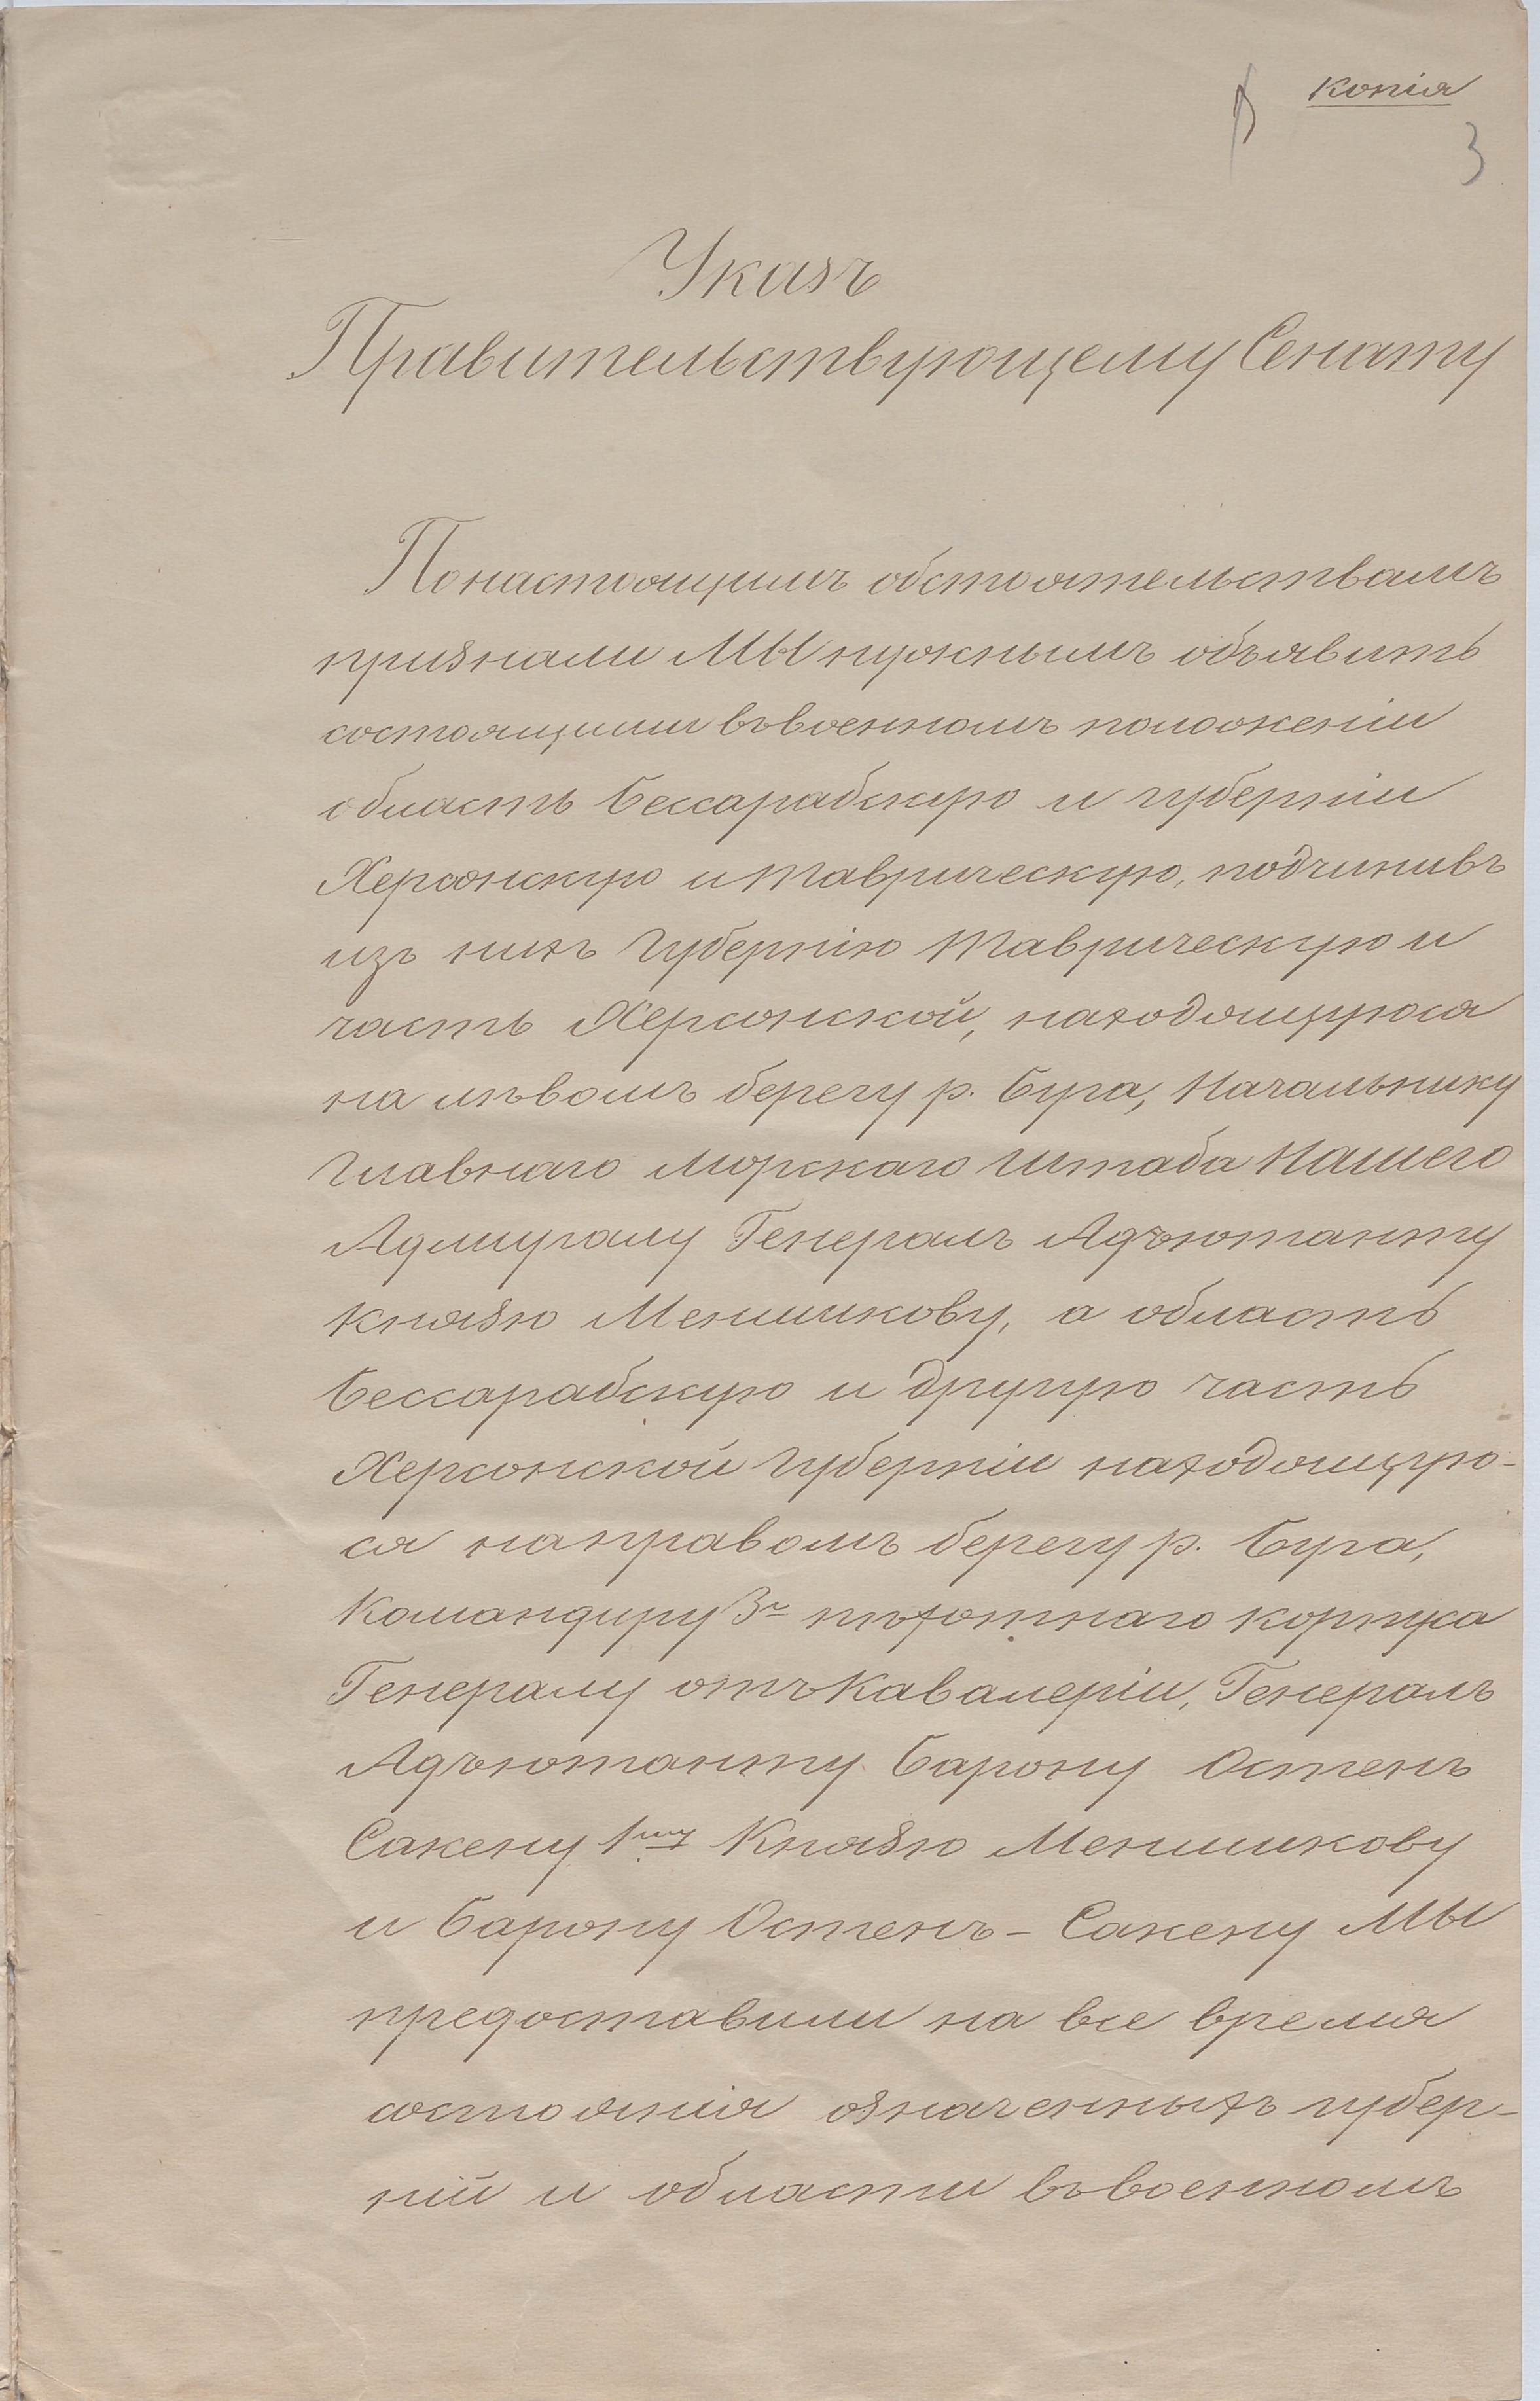 Копія
3
Указъ
Правительствующему Сенату
По настоящимъ обстоятельствамъ
признали МЫ нужнымъ объявить
состоящими въ военномъ положеніи
область Бессарабскую и губерніи
Херсонскую и Таврическую, подчинивъ
изъ нихъ Губернію Таврическую и
часть Херсонской, находящуюся
на лѣвомъ берегу р. Буга, Начальнику
Главнаго Морскаго Штаба Нашего
Адмиралу Генералъ Адъютанту
Князю Меншикову, а область
Бессарабскую и другую часть
Херсонской Губерніи находящую-
ся на правомъ берегу р. Буга,
Командиру 3го пѣхотнаго корпуса
Генералу отъ Кавалеріи, Генералъ
Адъютанту Барону Остенъ
Сакену 1му Князю Меншикову
и Барону Остенъ-Сакену МЫ
предоставили на все время
состоянія означенныхъ губер-
ній и области въ военномъ